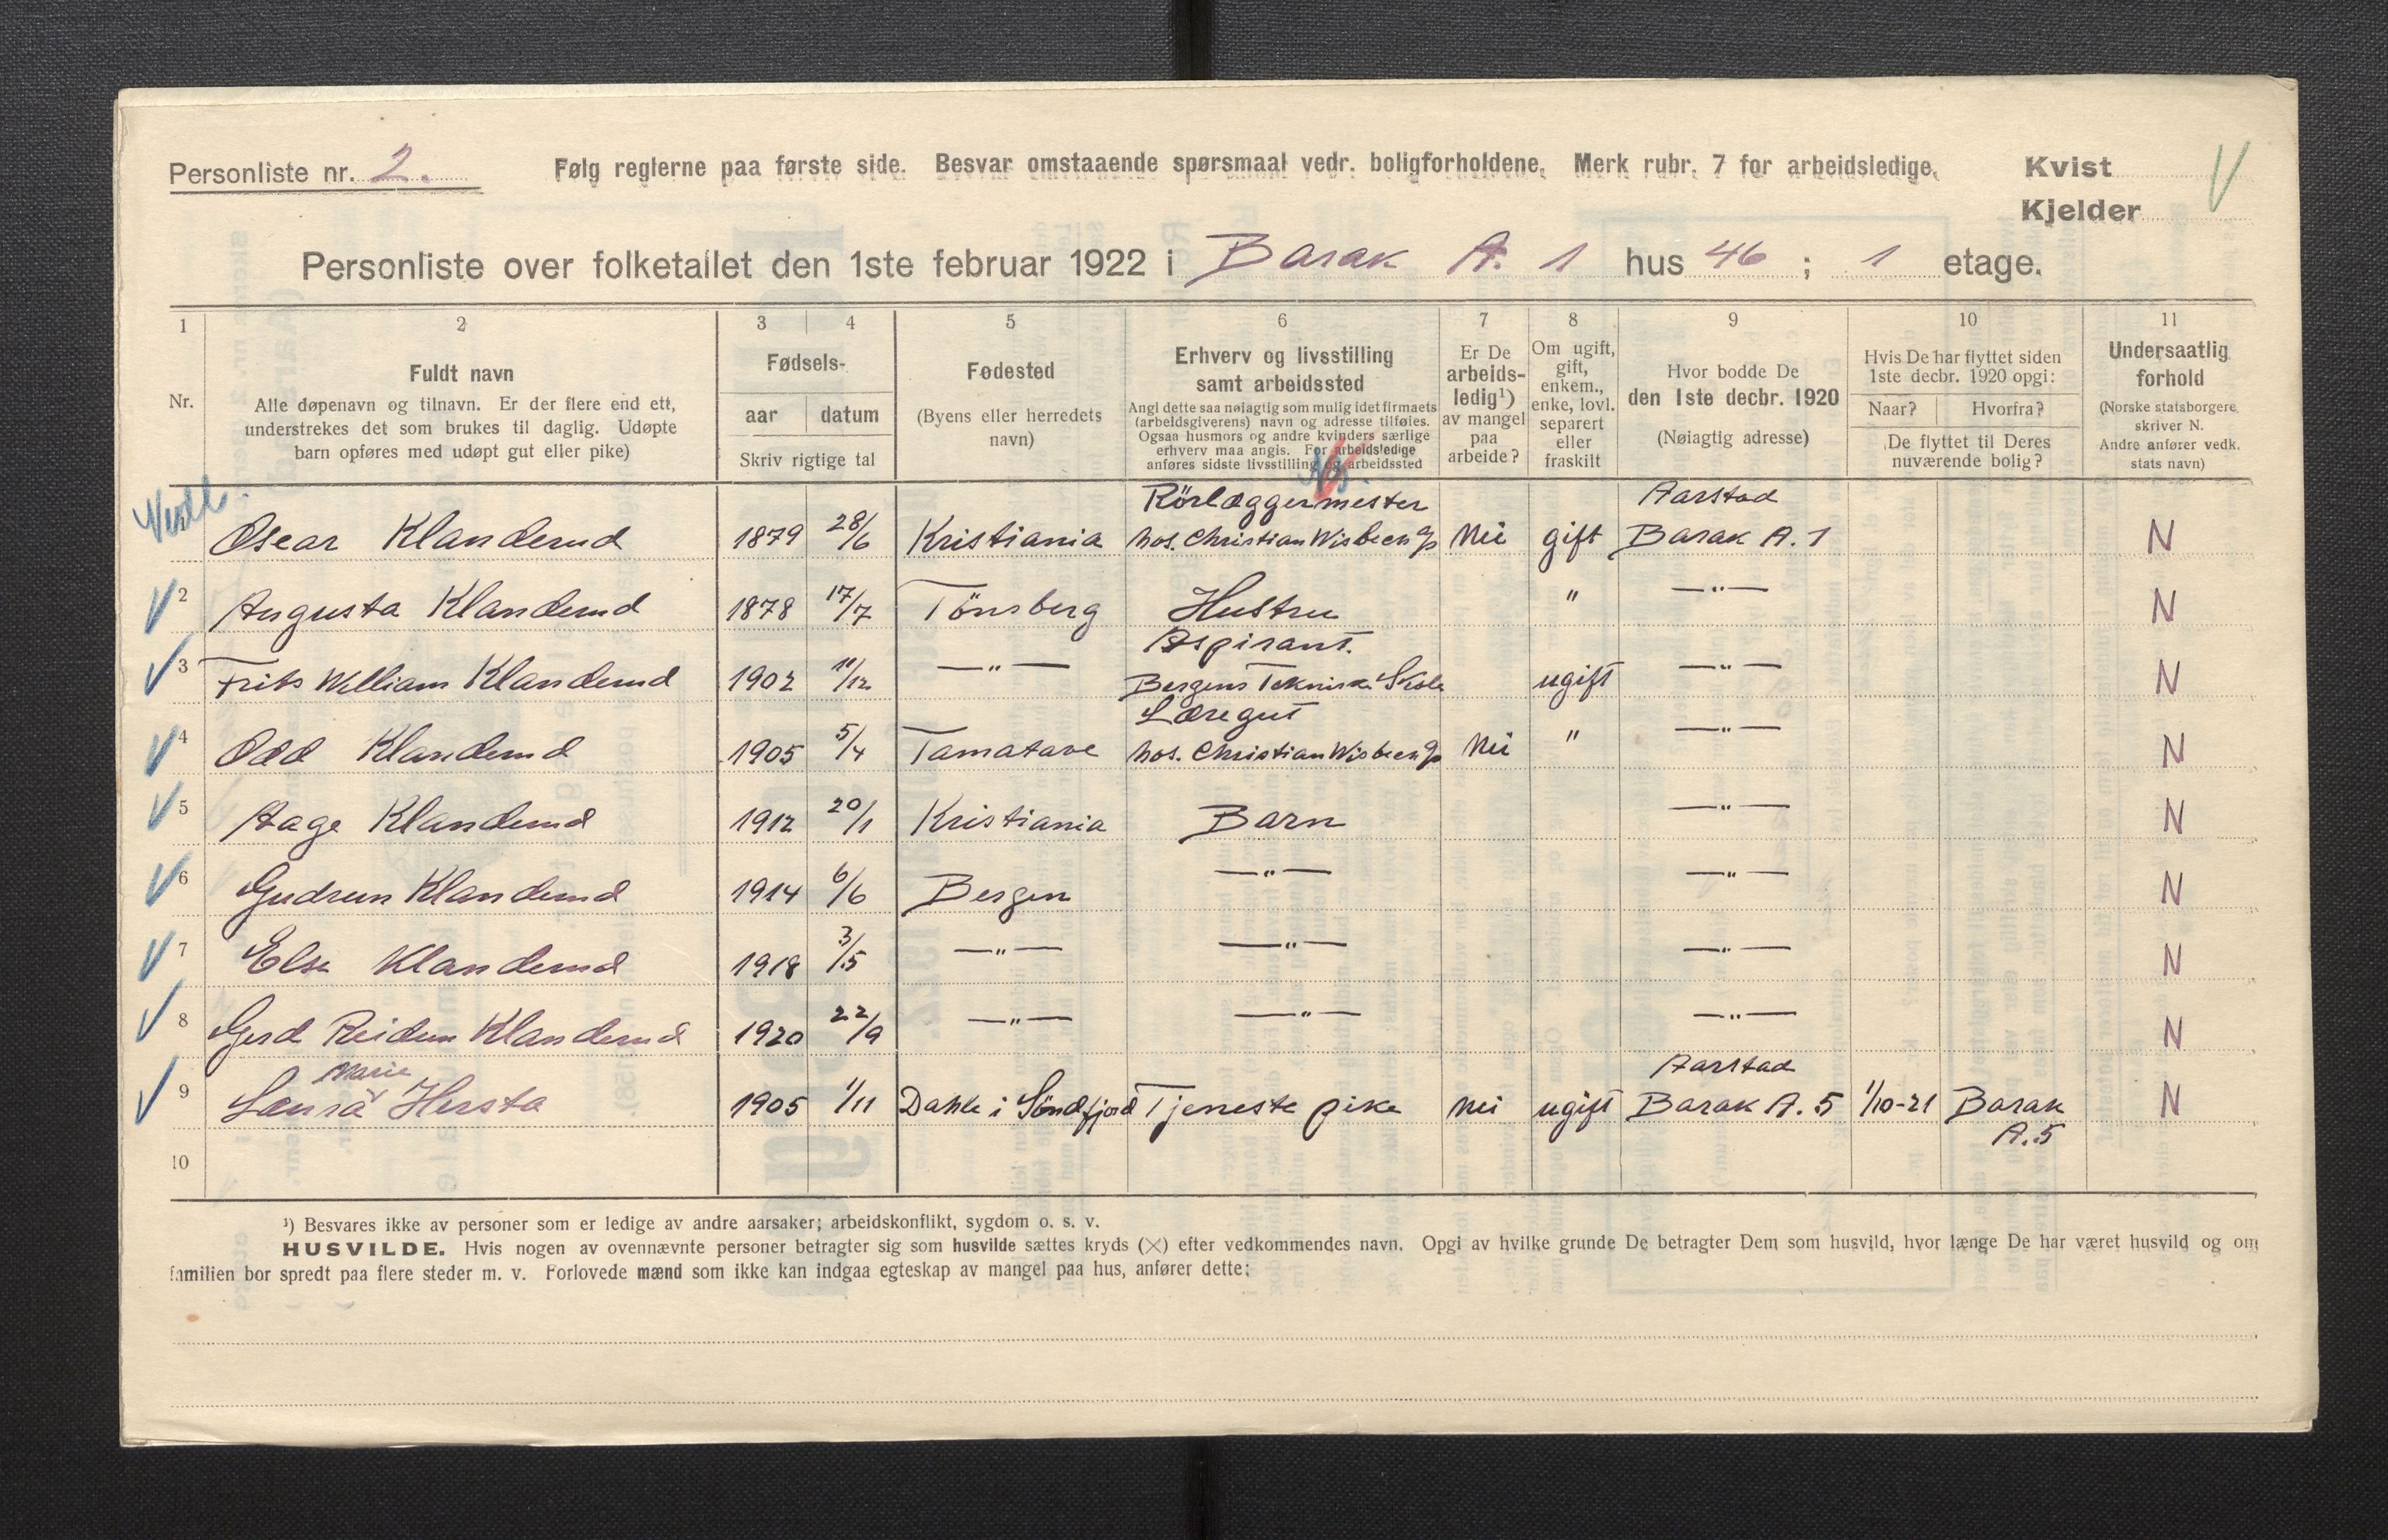 Personliste nr. 2. Følg reglerne paa første side. Besvar omstaaende spørsmaal vedr. boligforholdene. Merk rubr. 7 for arbeidsledige. Kvist
Kjelder
Personliste over folketallet den 1ste februar 1922 i Barak A. 1 hus 46 ; 1 etage.
1 2 3 4 5 6 7 8 9 10 11
Nr.
Fuldt navn
Alle døpenavn og tilnavn. Er der flere end ett,
understrekes det som brukes til daglig. Udøpte
barn opføres med udøpt gut eller pike)
Fødsels-
aar datum
Skriv rigtige tal
Fødested
(Byens eller herredets
navn)
Erhverv og livsstilling
samt arbeidssted
Angi dette saa nøiagtig som mulig idet firmaets
(arbeidsgiverens) navn og adresse tilføies.
Ogsaa husmors og andre kvinders særlige
erhverv maa angis. For arbeidsledige
anføres sidste livsstilling og arbeidssted
Er De
arbeids-
ledig¹)
av mangel
paa
arbeide?
Om ugift,
gift,
enkem.,
enke, lovl.
separert
eller
fraskilt
Hvor bodde De
den 1ste decbr. 1920
(Nøiagtig adresse)
Hvis De har flyttet siden
1ste decbr. 1920 opgi:
Naar? Hvorfra?
De flyttet til Deres
nuværende bolig?
Undersaatlig
forhold
(Norske statsborgere
skriver N.
Andre anfører vedk.
stats navn)
Rörlæggermester Aarstad
Oscar Klanderud 1879 28/6 Kristiania hos. Christian Wisbech Nei gift Barak A. 1 N
2 Augusta Klanderud 1878 17/7 Tönsberg Hustru " —"— N
Aspirant.
3 Frits William Klanderud 1902 11/12 —"— Bergens Tekniske Skole ugift —"— N
Læregut
4 Odd Klanderud 1905 5/4 Tamatave hos. Christian Wisbech Nei " —"— N
5 Aage Klanderud 1912 20/1 Kristiania Barn —"— N
6 Gudrun Klanderud 1914 6/6 Bergen —"— —"— N
7 Else Klanderud 1918 3/5 —"— —"— —"— N
8 Gerd Reidun Klanderud 1920 22/9 —"— —"— —"— N
Marie Aarstad
9 Laura Hersta 1905 1/11 Dahle i Söndfjord Tjeneste pike Nei ugift Barak A. 5 1/10-21 Barak N
A. 5
10
¹) Besvares ikke av personer som er ledige av andre aarsaker; arbeidskonflikt, sygdom o. s. v.
HUSVILDE. Hvis nogen av ovennævnte personer betragter sig som husvilde sættes kryds (×) efter vedkommendes navn. Opgi av hvilke grunde De betragter Dem som husvild, hvor længe De har været husvild og om
familien bor spredt paa flere steder m. v. Forlovede mænd som ikke kan indgaa egteskap av mangel paa hus, anfører dette: